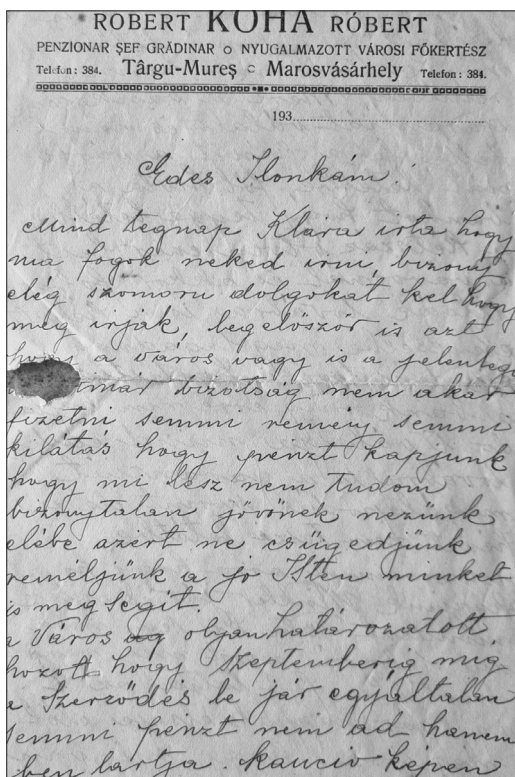 ROBERT KOHA RÓBERT
PENZIONAR ȘEF GRĂDINAR o NYUGALMAZOTT VÁROSI FŐKERTÉSZ
Telefon: 384. Târgu-Mureș o Marosvásárhely Telefon: 384.
193
Edes Ilonkám!
Mind tegnap Klára irta hogy
ma fogok neked irni, bizony
elég szomoru dolgokat kel hogy
meg irjak, legelöször is azt
hogy a város vagy is a jelenlegi
bizotság nem akar
fizetni semmi remény semmi
kilátás hogy pénzt kapjunk
hogy mi lesz nem tudom
bizonytalan jövönek nezünk
elébe azért ne csüggedjünk
reméljünk a jo Isten minket
is megsegit.
Város olyan határozatott
hozott hogy Szeptemberig mig
a Szerzödés le jár egyáltalan
semmi pénzt nem ad hanem
ben tartja. kaució képen